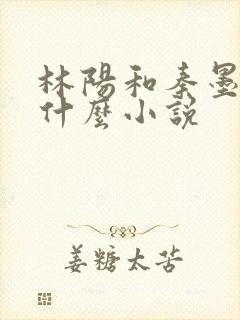 林陽和秦墨
什麼小說
姜糖太苦